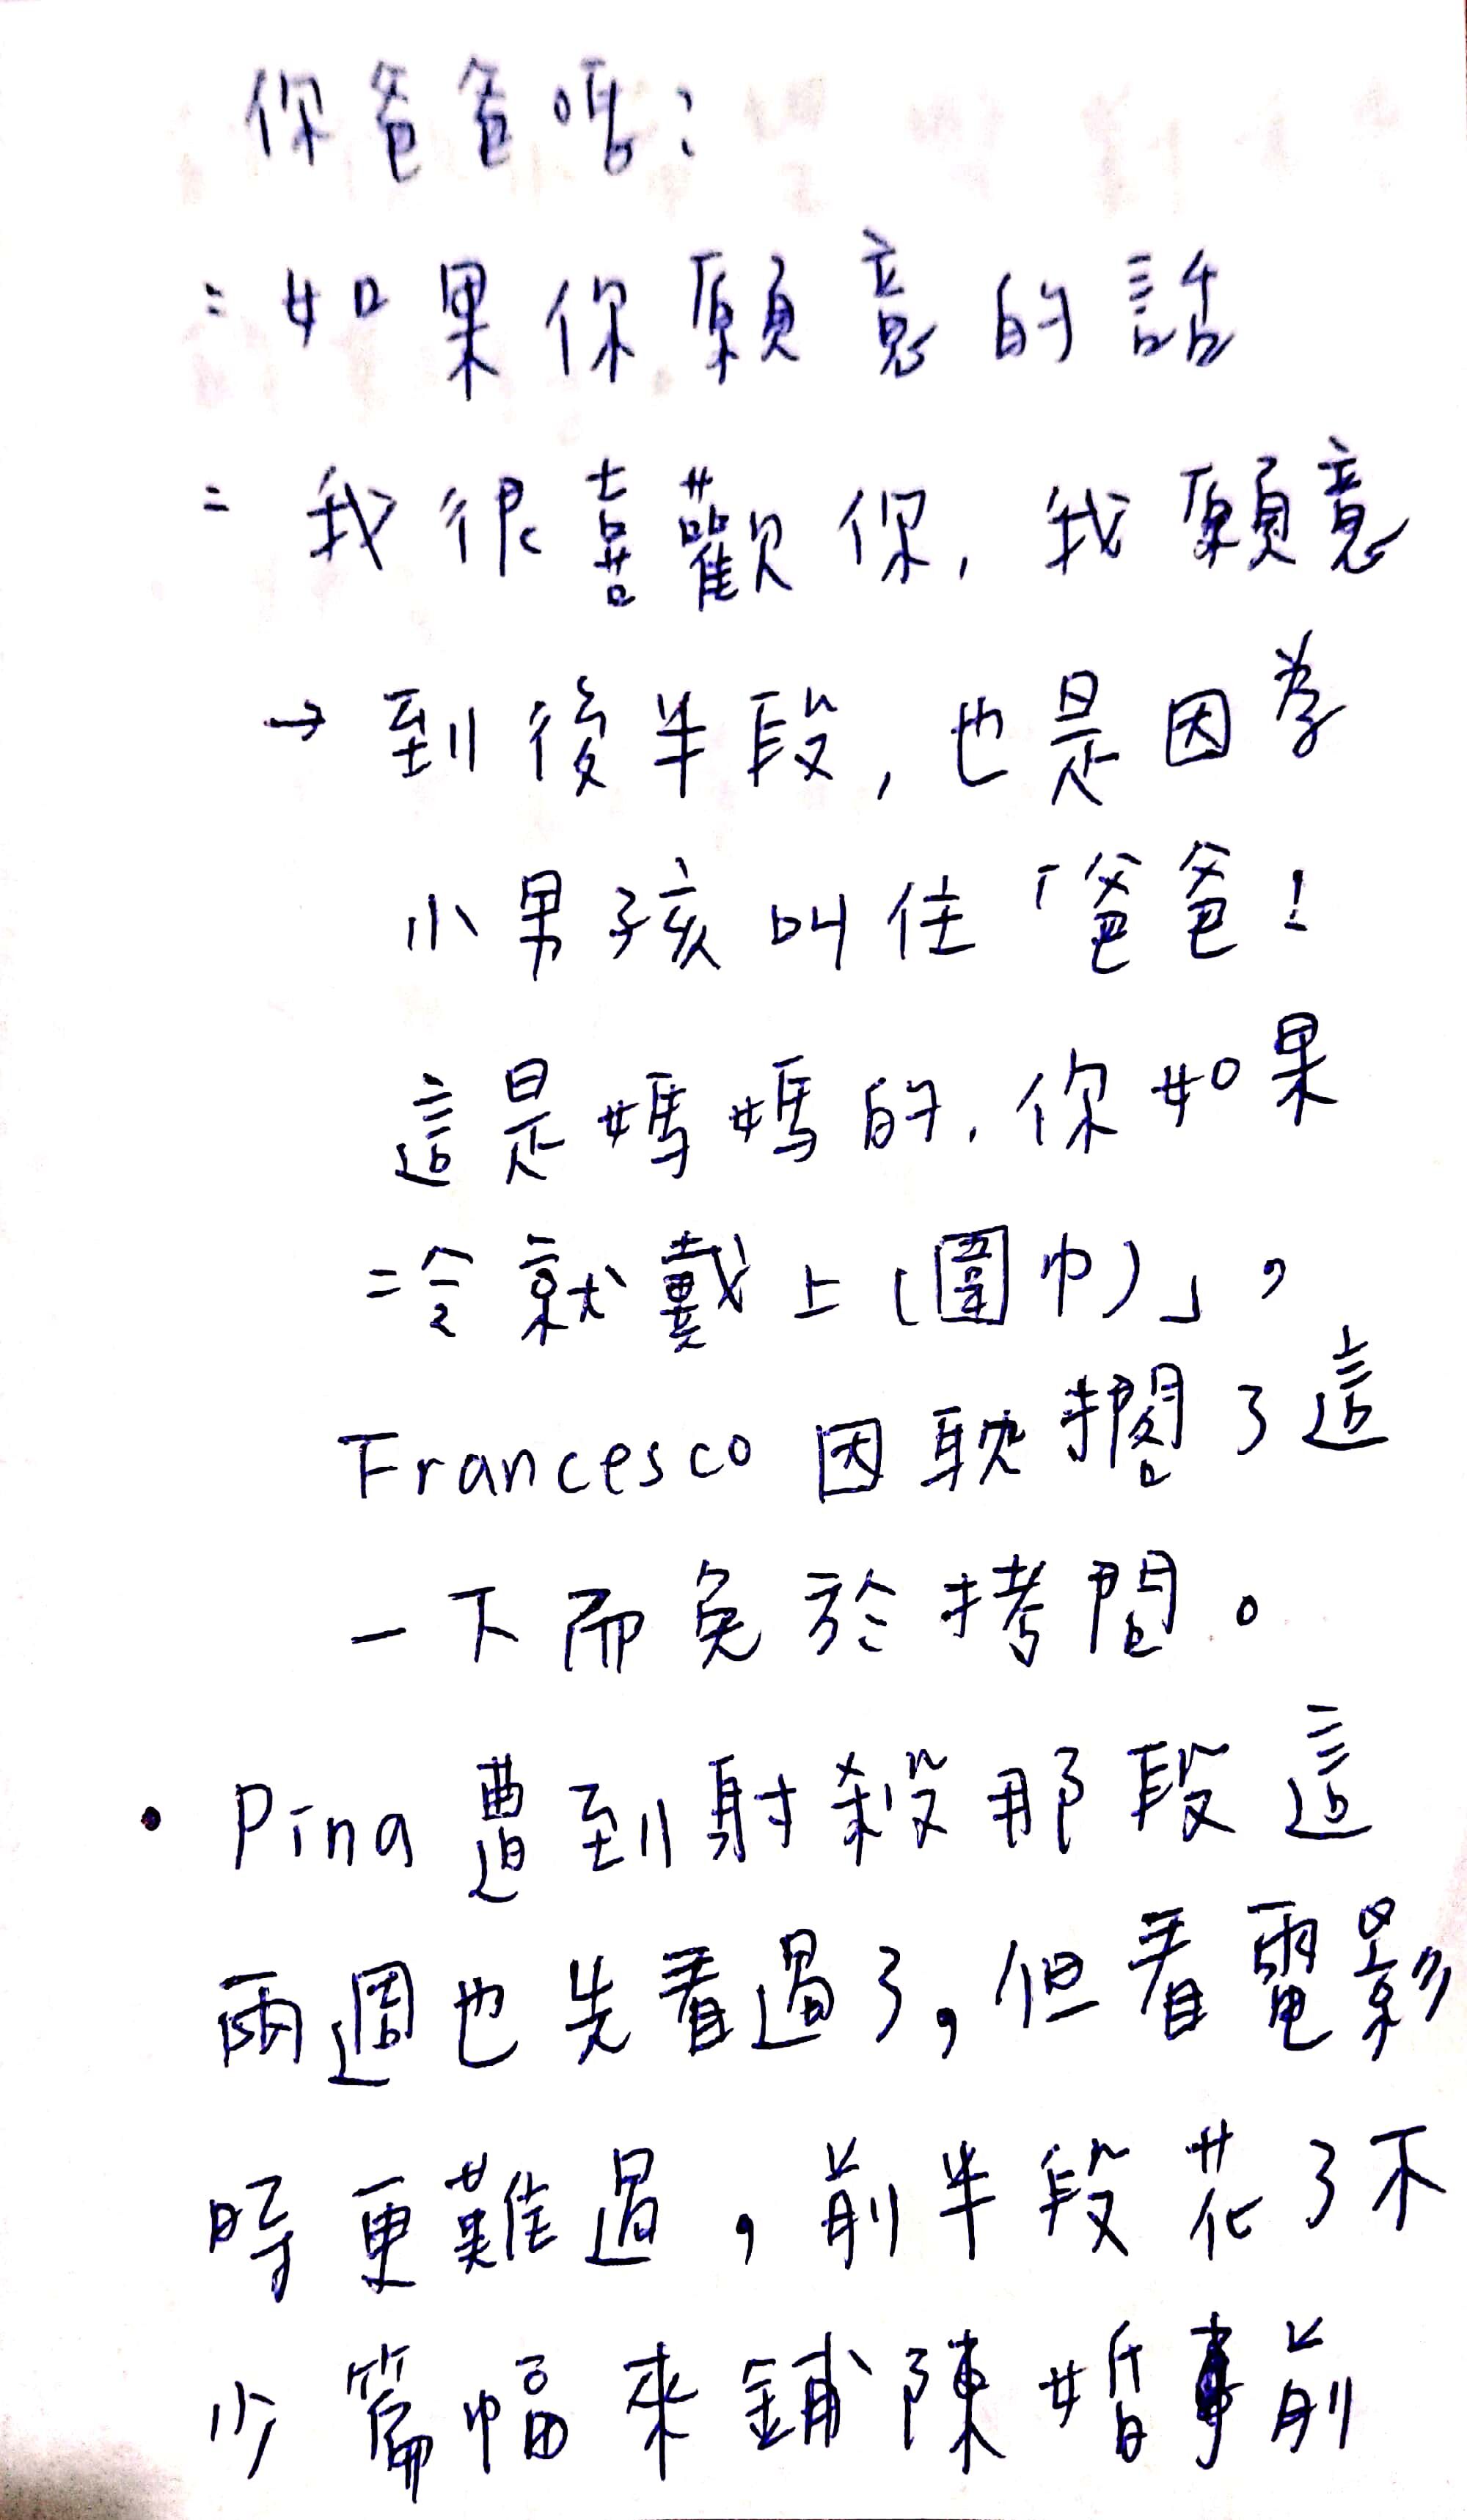 你爸爸嗎?
:如果你願意的話
:我很喜歡你,我願意
→到後半段,也是因為
小男孩叫住「爸爸!
這是媽媽的,你如果
冷就戴上(圍巾)」,
Francesco 因耽擱了這
一下而免於拷問。
• Pina遭到射殺那段這
兩週也先看過了,但看電影
時更難過,前半段花了不
少篇幅來鋪陳婚事前